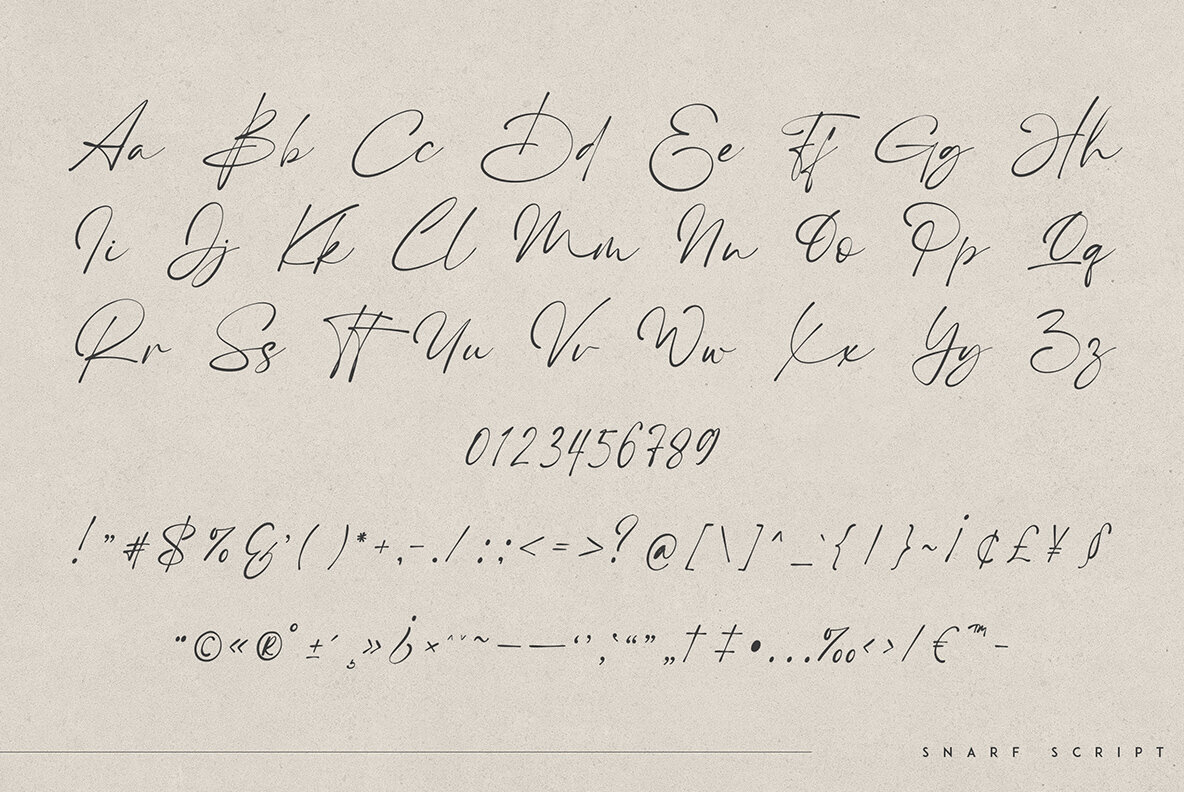 Aa Bb Cc Dd Ee Ff Gg Hh
Ii Jj Kk Ll Mm Nn Oo Pp Qq
Rr Ss Tt Uu Vv Ww Xx Yy Zz
0123456789
!"#$%&'()*+,-./:;<=>?@[\]^_`{|}~¡¢£¥§
¨©«®°±´¸»¿׈ˇ˜–—‘’‚‛“”„†‡•…‰‹›⁄€™−
SNARF SCRIPT